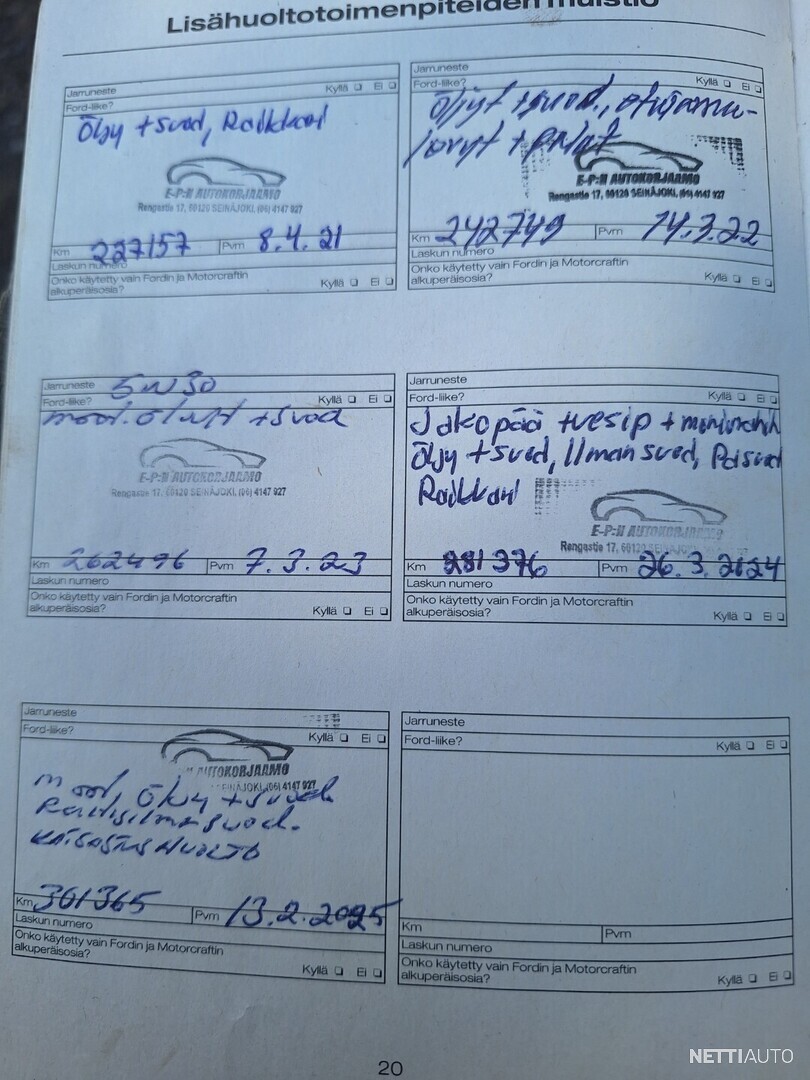 Lisähuoltotoimenpiteiden muistio
Jarruneste
Ford-liike? Kyllä Ei
Öljy + suod, Raikkari
E-P:N AUTOKORJAAMO
Rengastie 17, 60120 SEINÄJOKI, (06) 4147 927
Km 227157 Pvm 8.4.21
Laskun numero
Onko käytetty vain Fordin ja Motorcraftin
alkuperäisosia? Kyllä Ei
Jarruneste
Ford-liike? Kyllä Ei
Öljyt + suod.,
+
E-P:N AUTOKORJAAMO
Rengastie 17, 60120 SEINÄJOKI, (06) 4147 927
Km 242749 Pvm 14.3.22
Laskun numero
Onko käytetty vain Fordin ja Motorcraftin
alkuperäisosia? Kyllä Ei
Jarruneste 5W30
Ford-liike? Kyllä Ei
moot. öljyt + suod
E-P:N AUTOKORJAAMO
Rengastie 17, 60120 SEINÄJOKI, (06) 4147 927
Km 262496 Pvm 7.3.23
Laskun numero
Onko käytetty vain Fordin ja Motorcraftin
alkuperäisosia? Kyllä Ei
Jarruneste
Ford-liike? Kyllä Ei
Jakopää + vesip +
Öljy + suod, Ilman suod,
Raikkari
E-P:N AUTOKORJAAMO
Rengastie 17, 60120 SEINÄJOKI
Km 281376 Pvm 26.3.2024
Laskun numero
Onko käytetty vain Fordin ja Motorcraftin
alkuperäisosia? Kyllä Ei
Jarruneste
Ford-liike? Kyllä Ei
AUTOKORJAAMO
SEINÄJOKI, (06) 4147 927
moot, öljy + suod.
Raitisilmasuod.
KAISASTUS HUOLTO
Km 301365 Pvm 13.2.2025
Laskun numero
Onko käytetty vain Fordin ja Motorcraftin
alkuperäisosia? Kyllä Ei
Jarruneste
Ford-liike? Kyllä Ei
Km Pvm
Laskun numero
Onko käytetty vain Fordin ja Motorcraftin
alkuperäisosia? Kyllä Ei
20
NETTIAUTO